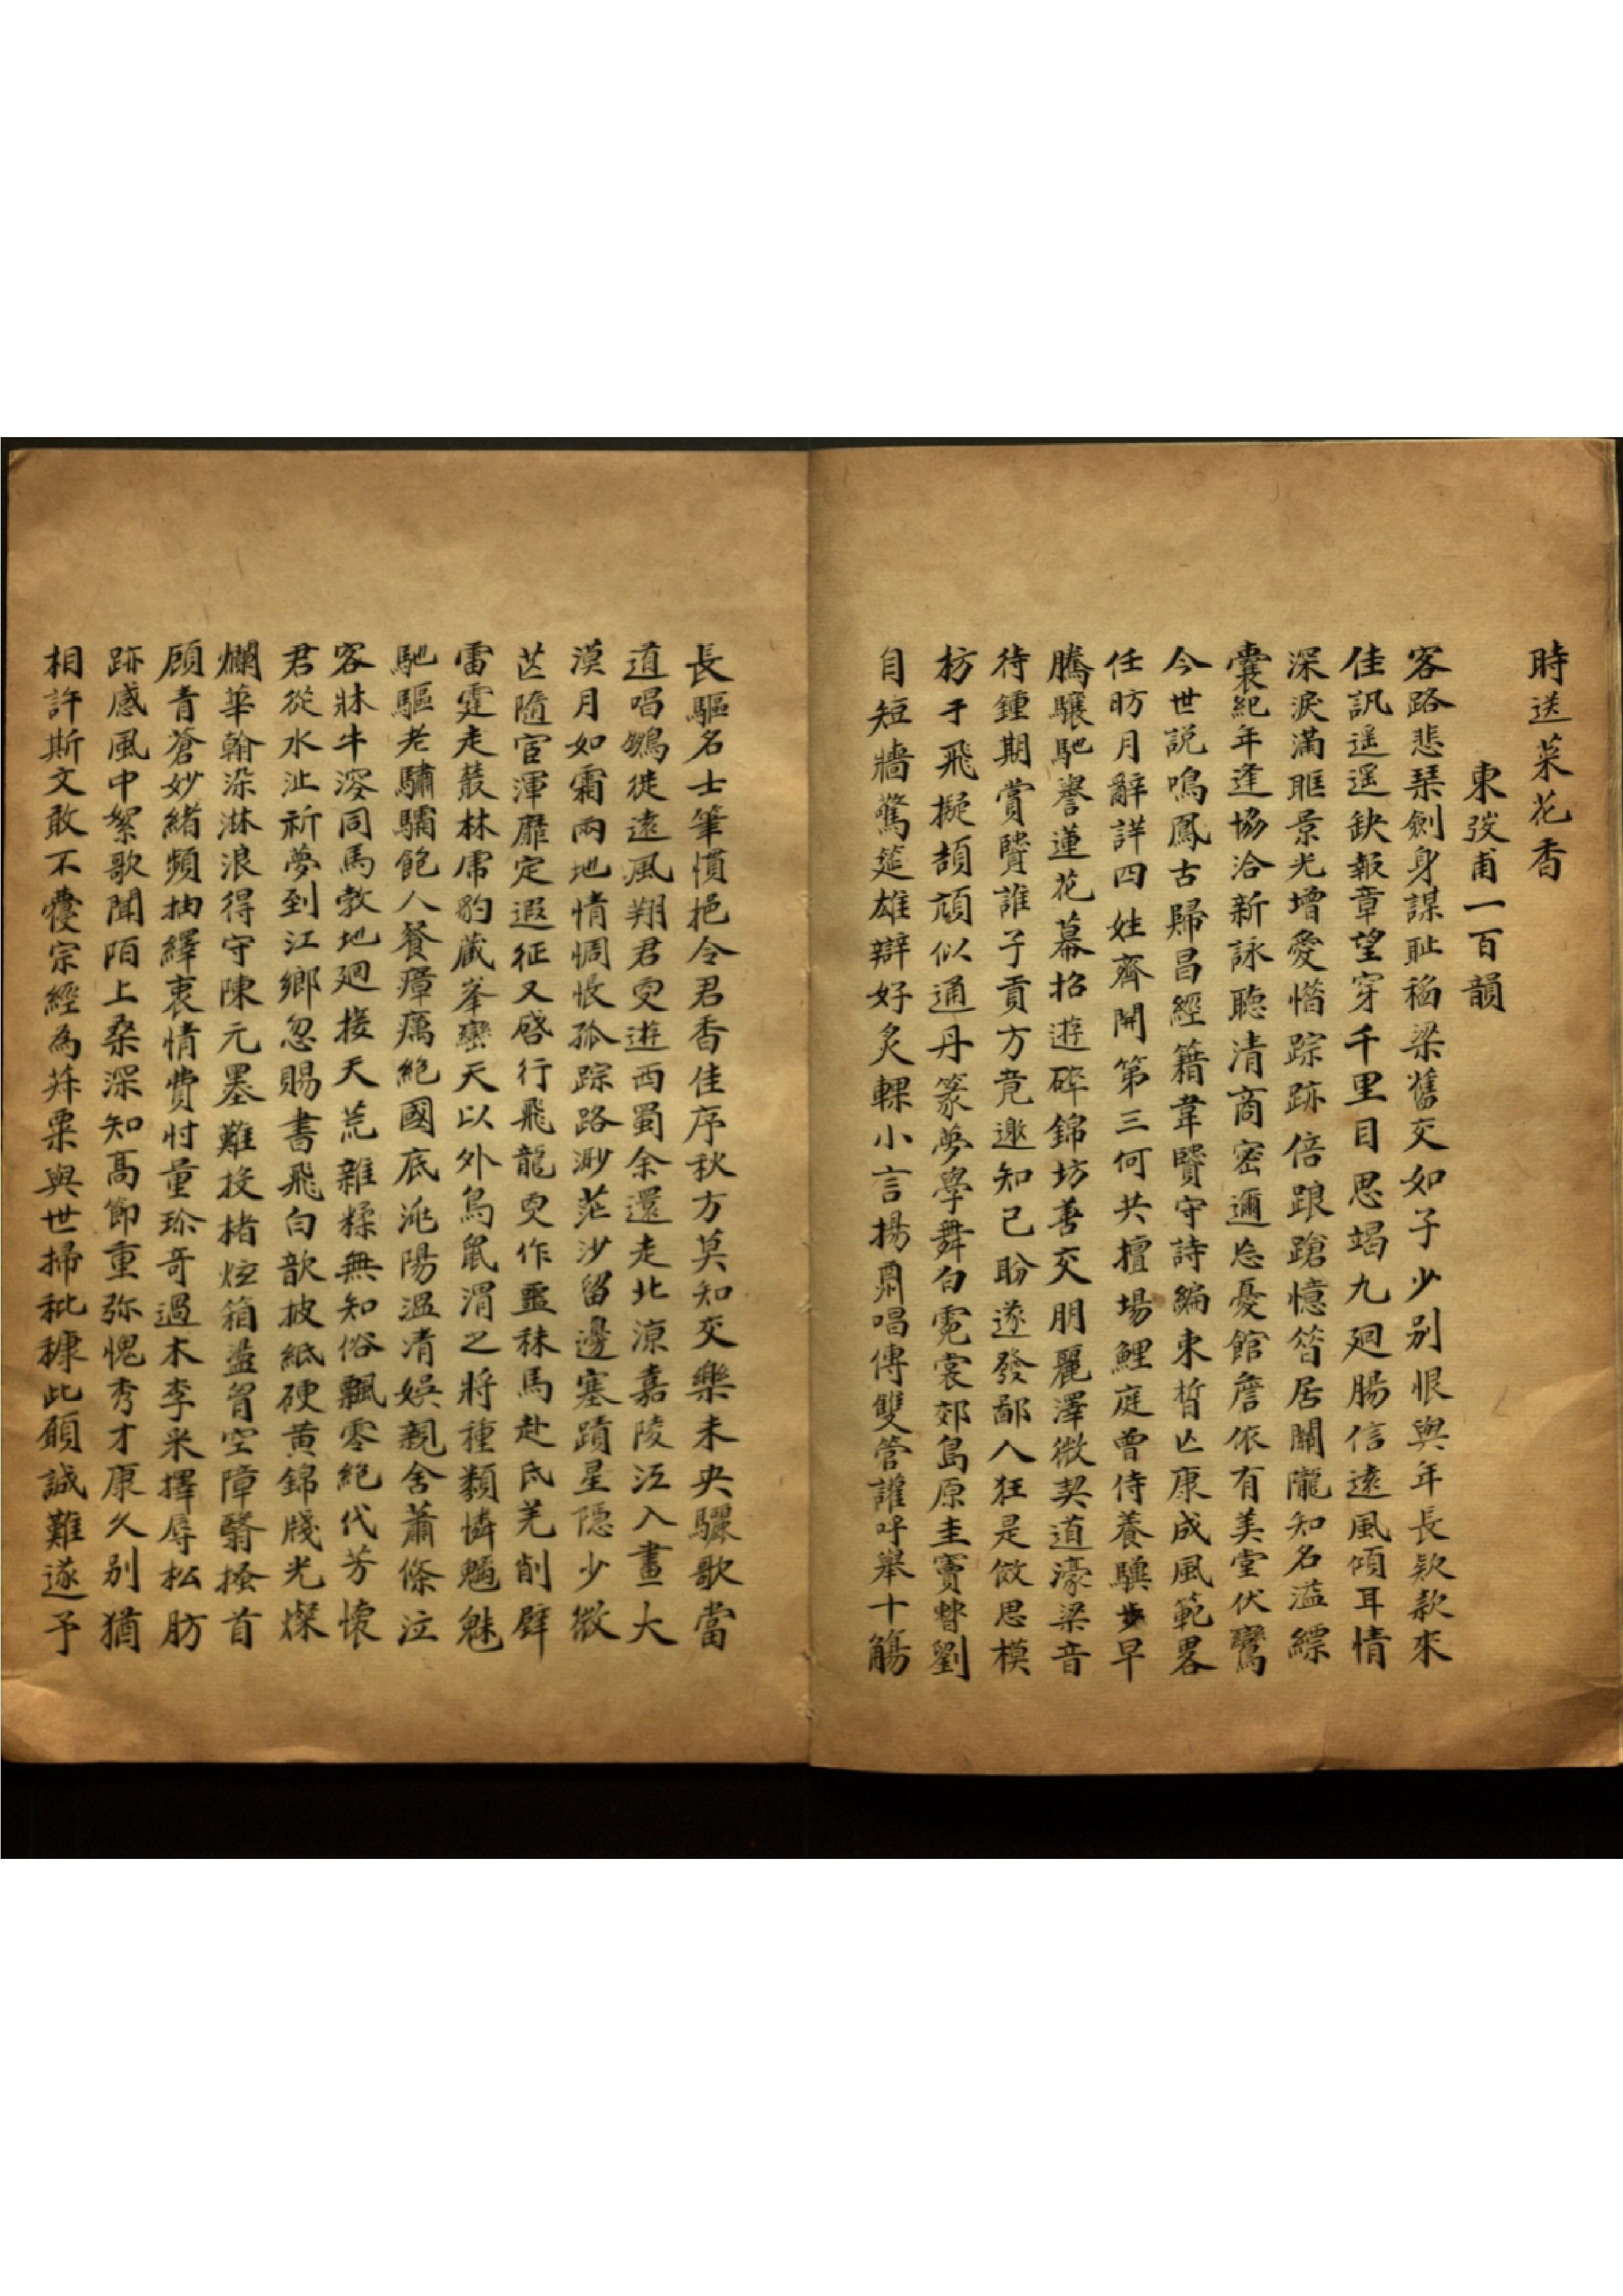 時送菜花香
東弢甫一百韻
客路悲琹劍身謀耻稻梁舊交如子少别恨與年長欵欵來
佳訊遥遥缺報章望穿千里目思竭九廻腸信遠風傾耳情
深淚滿眶景光增愛惜踪跡倍踉蹌憶昝居關隴知名溢縹
囊紀年逢協洽新詠聽清商密邇忩憂館詹依有美堂伏鸞
今世説鳴鳳古歸昌經籍韋賢守詩編東晳亡康成風範畧
任昉月辭詳四姓齊開第三何共擅場鯉庭曾侍養驥步早
騰驤馳譽蓮花幕招遊碎錦坊善交朋麗澤微契道濠梁音
待鍾期賞賢誰子貢方竟邀知己盼遂發鄙人狂是俲思模
枋于飛擬頡頏似通丹篆夢學舞白霓裳郊島原圭竇嚳劉
自短牆驚筵雄辯好炙輠小言揚肅唱傳雙管讙呼舉十觴
長驅名士筆慣挹令君香佳序秋方莫知交樂未央驪歌當
道唱鷁徙遠風翔君叓遊西蜀余還走北凉嘉陵江入畫大
漠月如霜兩地情惆悵孤踪路渺茫沙留邊塞蹟星隱少微
芒隨宦渾靡定遐征又啓行飛龍叓作噩秣馬赴氐羌削壁
雷霆走叢林虎豹藏峯巒天以外鳥鼠渭之將種類憐魑魅
馳驅老驌驦飽人餐瘴癘絶國底洮陽温凊娯親舍蕭條泣
客牀牛溲同馬敦地廻接天荒雜糅無知俗飄零絶代芳懷
君從水沚祈夢到江鄉忽賜書飛白歆披紙硬黄錦牋光燦
爛華翰染淋浪得守陳元墨難投楮炫箱盪胷空障翳搔首
顧青蒼妙緒頻抽繹衷情費忖量珎哥過木李米擇辱松肪
跡感風中絮歌聞陌上桑深知高節重弥愧秀才康久别猶
相許斯文敢不㦬宗經為菽粟與世掃秕穅此願誠難遂予